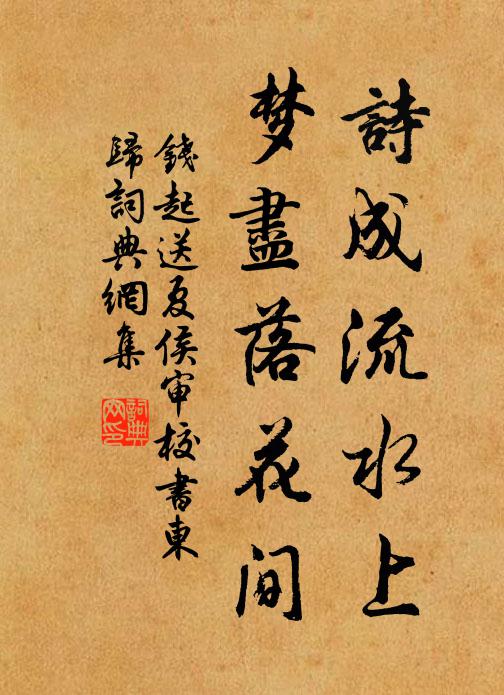 詩成流水上
梦盡落花间
錢起送夏侯审校書東
歸詞典網集
詞典
网印